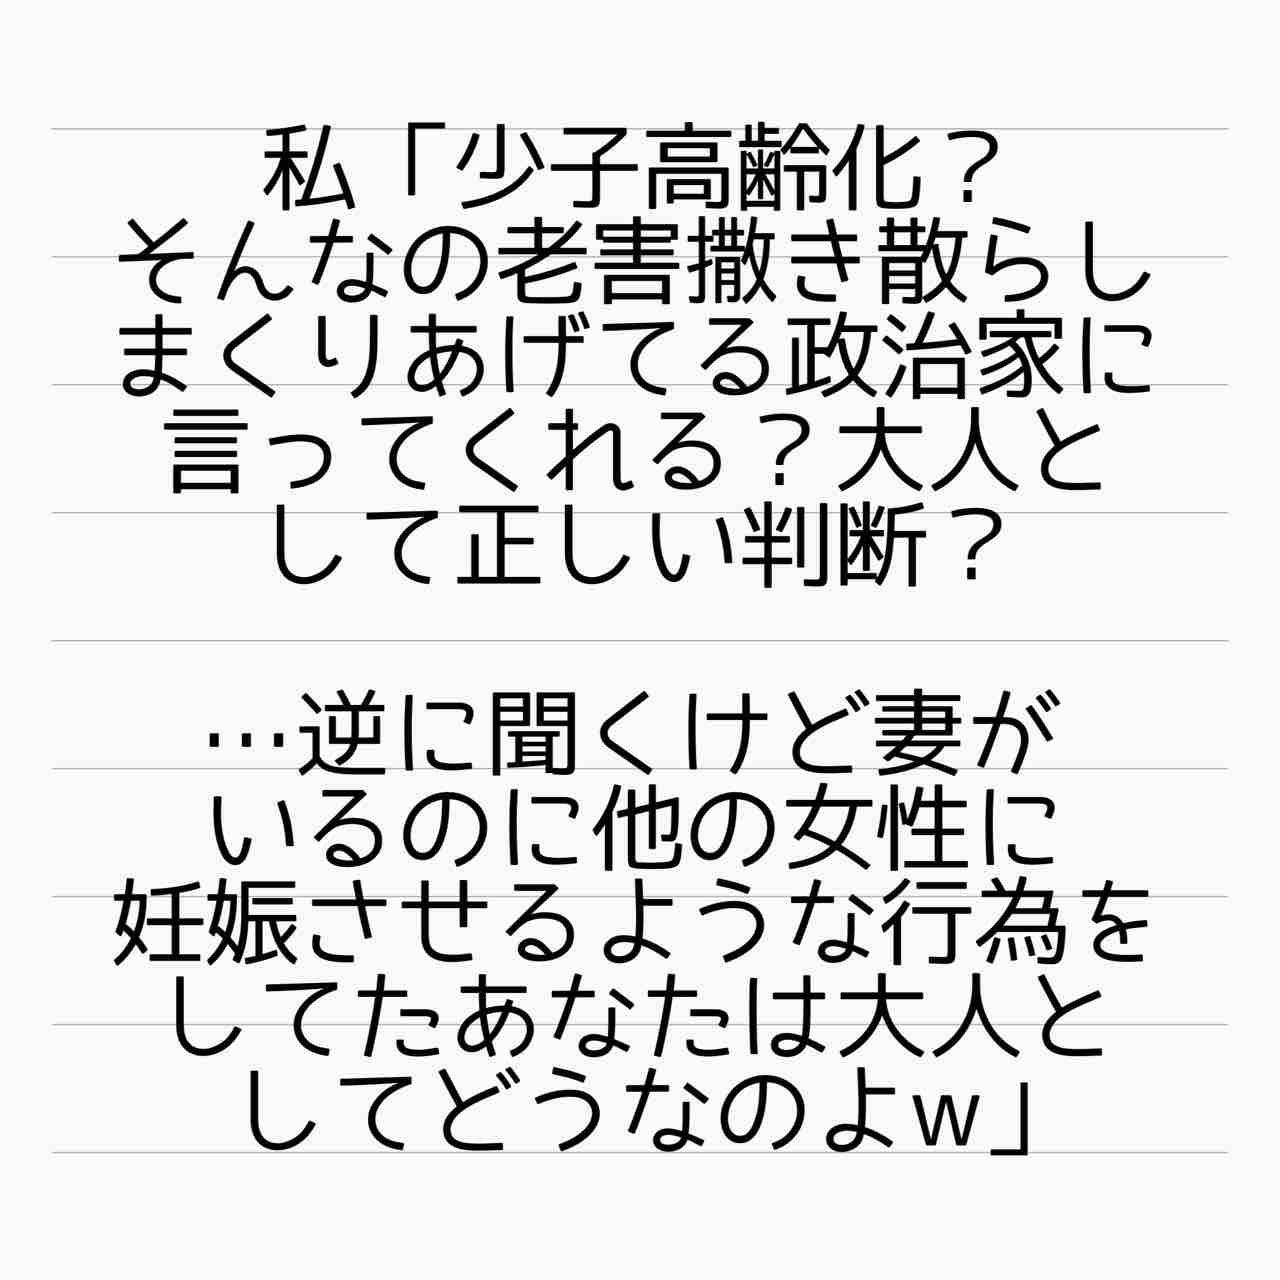 私「少子高齢化？
そんなの老害撒き散らし
まくりあげてる政治家に
言ってくれる？大人と
して正しい判断？
…逆に聞くけど妻が
いるのに他の女性に
妊娠させるような行為を
してたあなたは大人と
してどうなのよw」